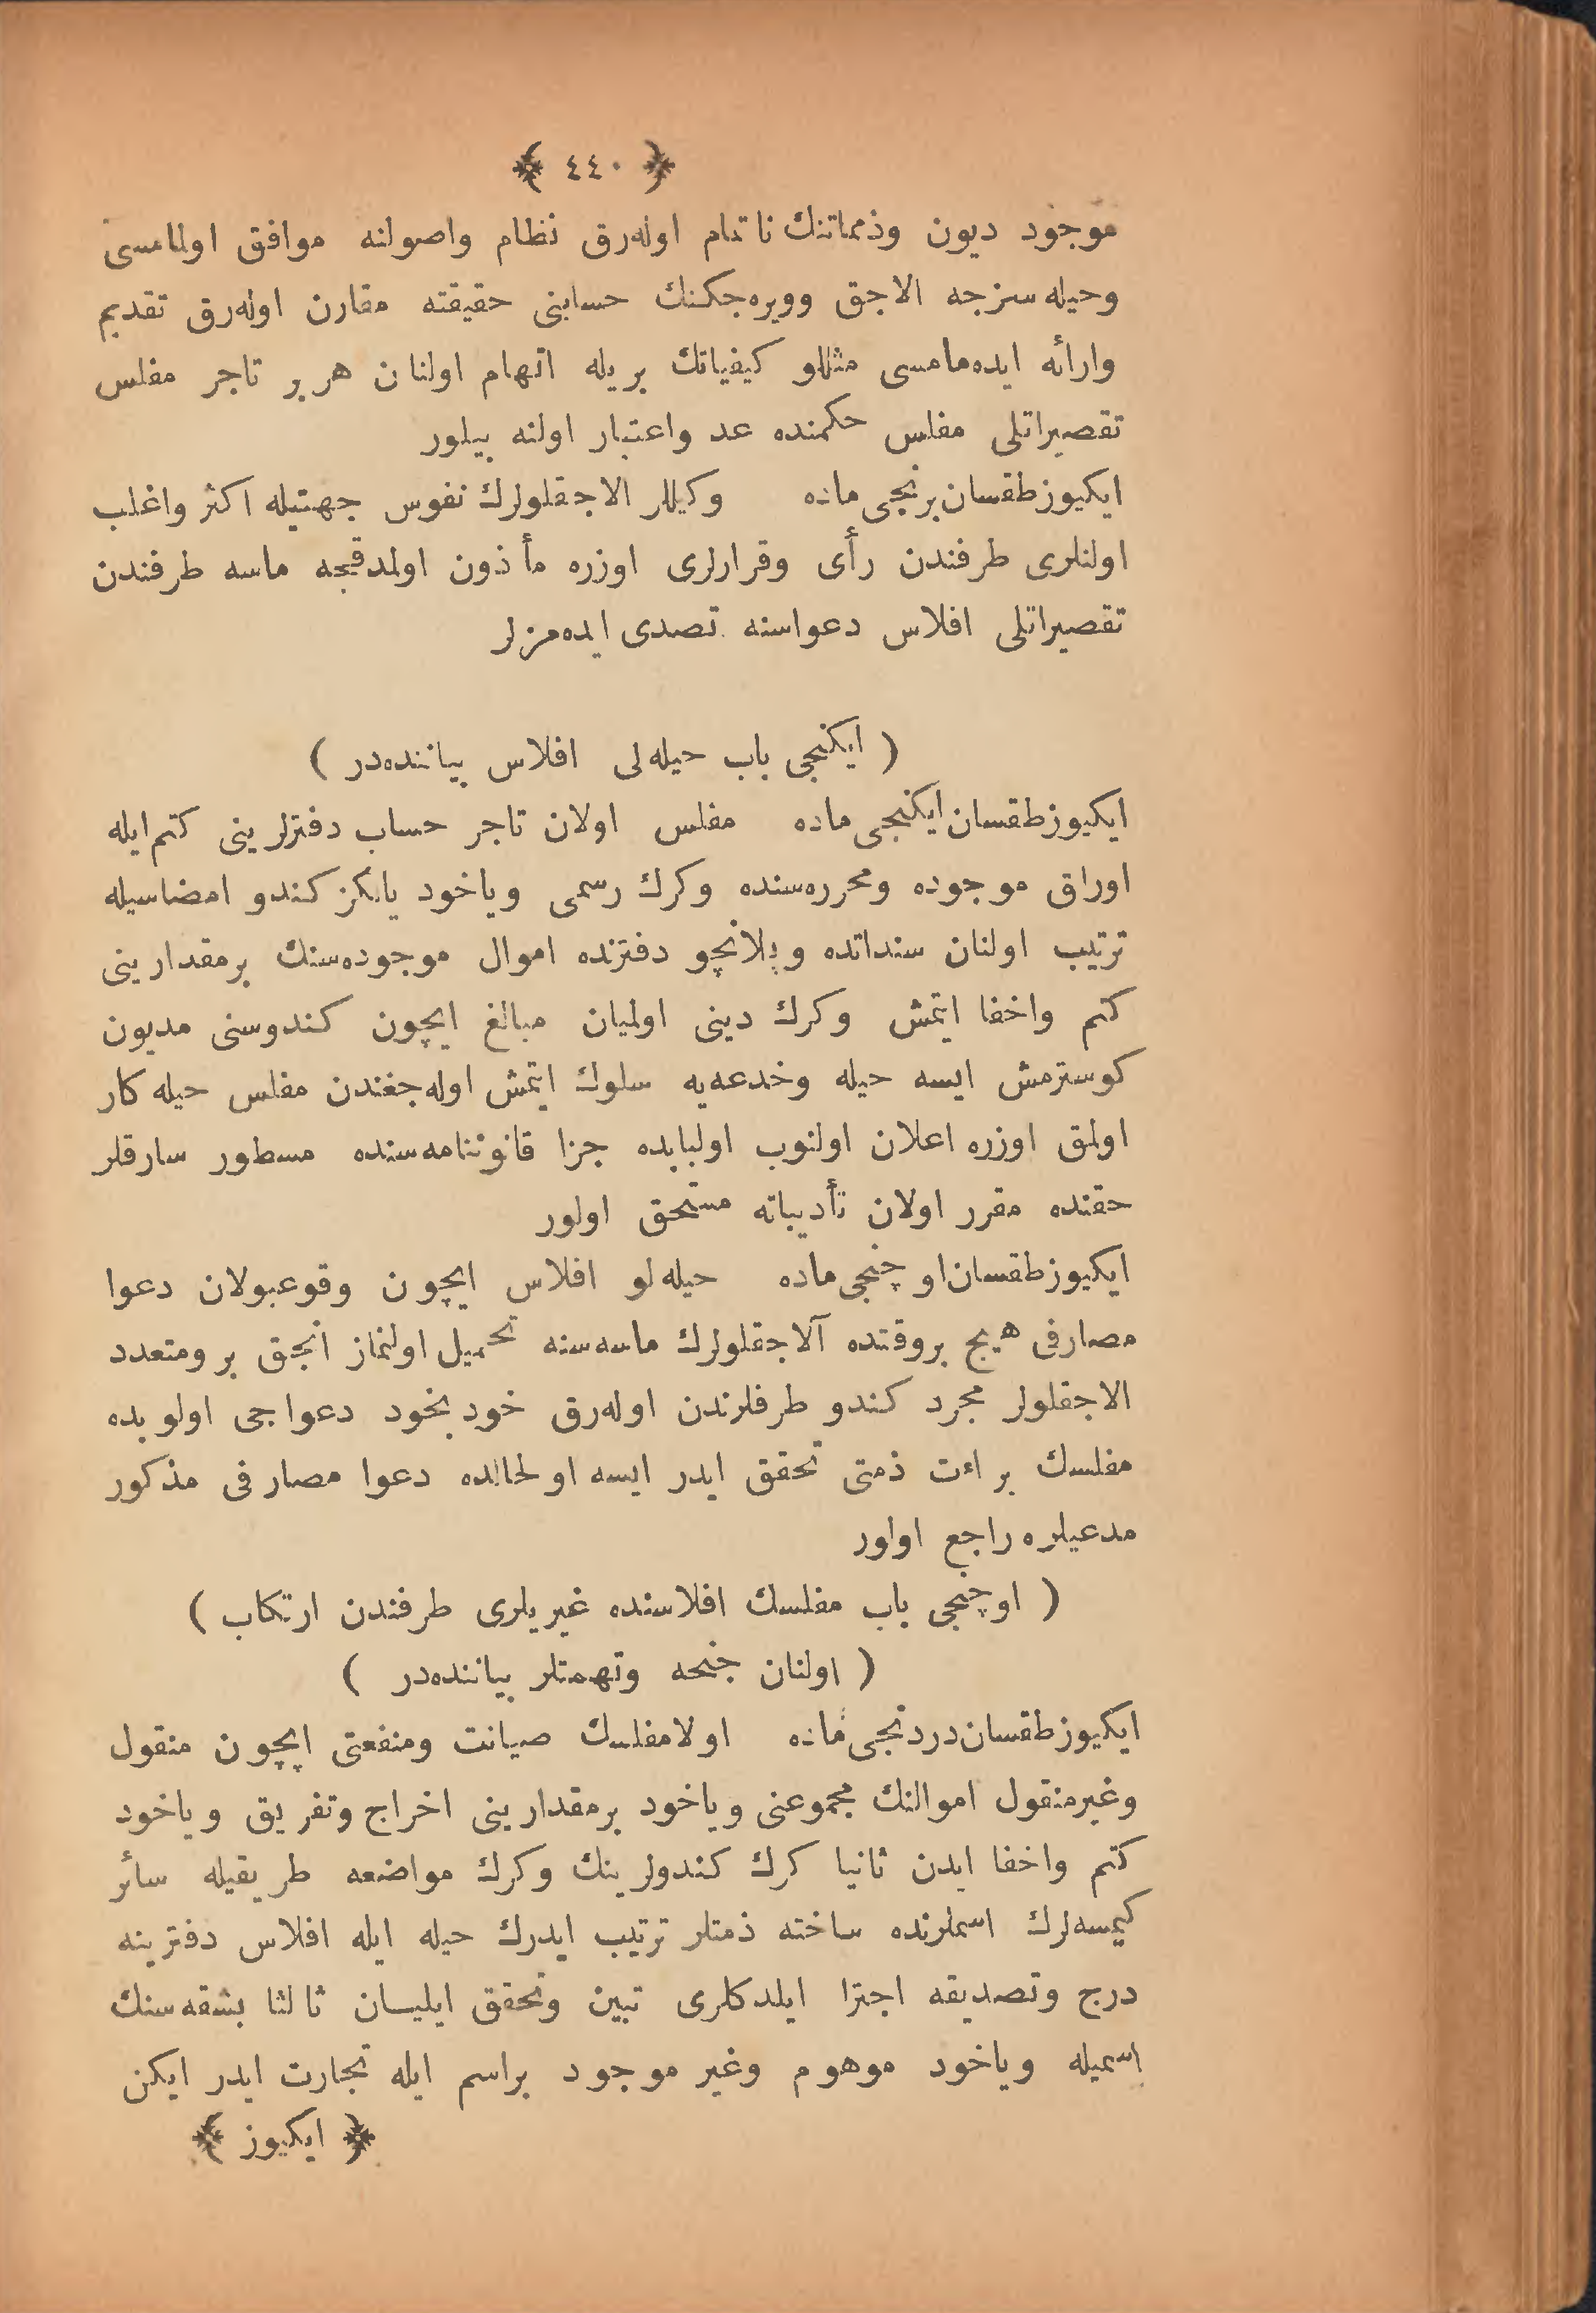 ﴿ ٤٤٠ ﴾
موجود ديون وذمماتنك ناتمام اوله‌رق نظام واصولنه موافق اولمامسی
وحيله سزجه الاجق وويره‌جكنك حسابنی حقيقته مقارن اوله‌رق تقديم
وارائه ايده‌مامسی مثللو كيفياتك بريله اتهام اولنان هربر تاجر مفلس
تقصيراتلی مفلس حكمنده عد واعتبار اولنه بيلور
ايكيوزطقسان‌برنجی ماده وكيللر الاجقلولرك نفوس جهتيله اكثر واغلب
اولنلری طرفندن رأی وقرارلری اوزره مأذون اولمدقجه ماسه طرفندن
تقصيراتلی افلاس دعواسنه تصدی ايده‌مزلر
( ايكنجی باب حيله‌لی افلاس بياننده‌در )
ايكيوزطقسان‌ايكنجی ماده مفلس اولان تاجر حساب دفترلرينی كتم ايله
اوراق موجوده ومحرره‌سنده وكرك رسمی وياخود يالكز كندو امضاسيله
ترتيب اولنان سنداتده وپلانچو دفترنده اموال موجوده‌سنك برمقدارينی
كتم واخفا ايتمش وكرك دينی اولميان مبالغ ايچون كندوسنی مديون
كوسترمش ايسه حيله وخدعه‌يه سلوك ايتمش اوله‌جغندن مفلس حيله كار
اولمق اوزره اعلان اولنوب اولبابده جزا قانوننامه‌سنده مسطور سارقلر
حقنده مقرر اولان تأديباته مستحق اولور
ايكيوزطقسان‌اوچنجی ماده حيله‌لو افلاس ايچون وقوعبولان دعوا
مصارفی هيچ بروقتده آلاجقلولرك ماسه‌سنه تحميل اولنماز انجق برومتعدد
الاجقلولر مجرد كندو طرفلرندن اوله‌رق خود بخود دعواجی اولوبده
مفلسك براءت ذمتی تحقق ايدر ايسه اولحالده دعوا مصارفی مذكور
مدعيلره راجع اولور
( اوچنجی باب مفلسك افلاسنده غيريلری طرفندن ارتكاب )
( اولنان جنحه وتهمتلر بياننده‌در )
ايكيوزطقسان‌دردنجی ماده اولا مفلسك صيانت ومنفعتی ايچون منقول
وغيرمنقول اموالنك مجموعنی وياخود برمقدارينی اخراج وتفريق وياخود
كتم واخفا ايدن ثانيا كرك كندولرينك وكرك مواضعه طريقيله سائر
كيمسه‌لرك اسملرنده ساخته ذمتلر ترتيب ايدرك حيله ايله افلاس دفترينه
درج وتصديقه اجترا ايلدكلری تبين وتحقق ايليان ثالثا بشقه‌سنك
اسميله وياخود موهوم وغير موجود براسم ايله تجارت ايدر ايكن
﴿ ايكيوز ﴾